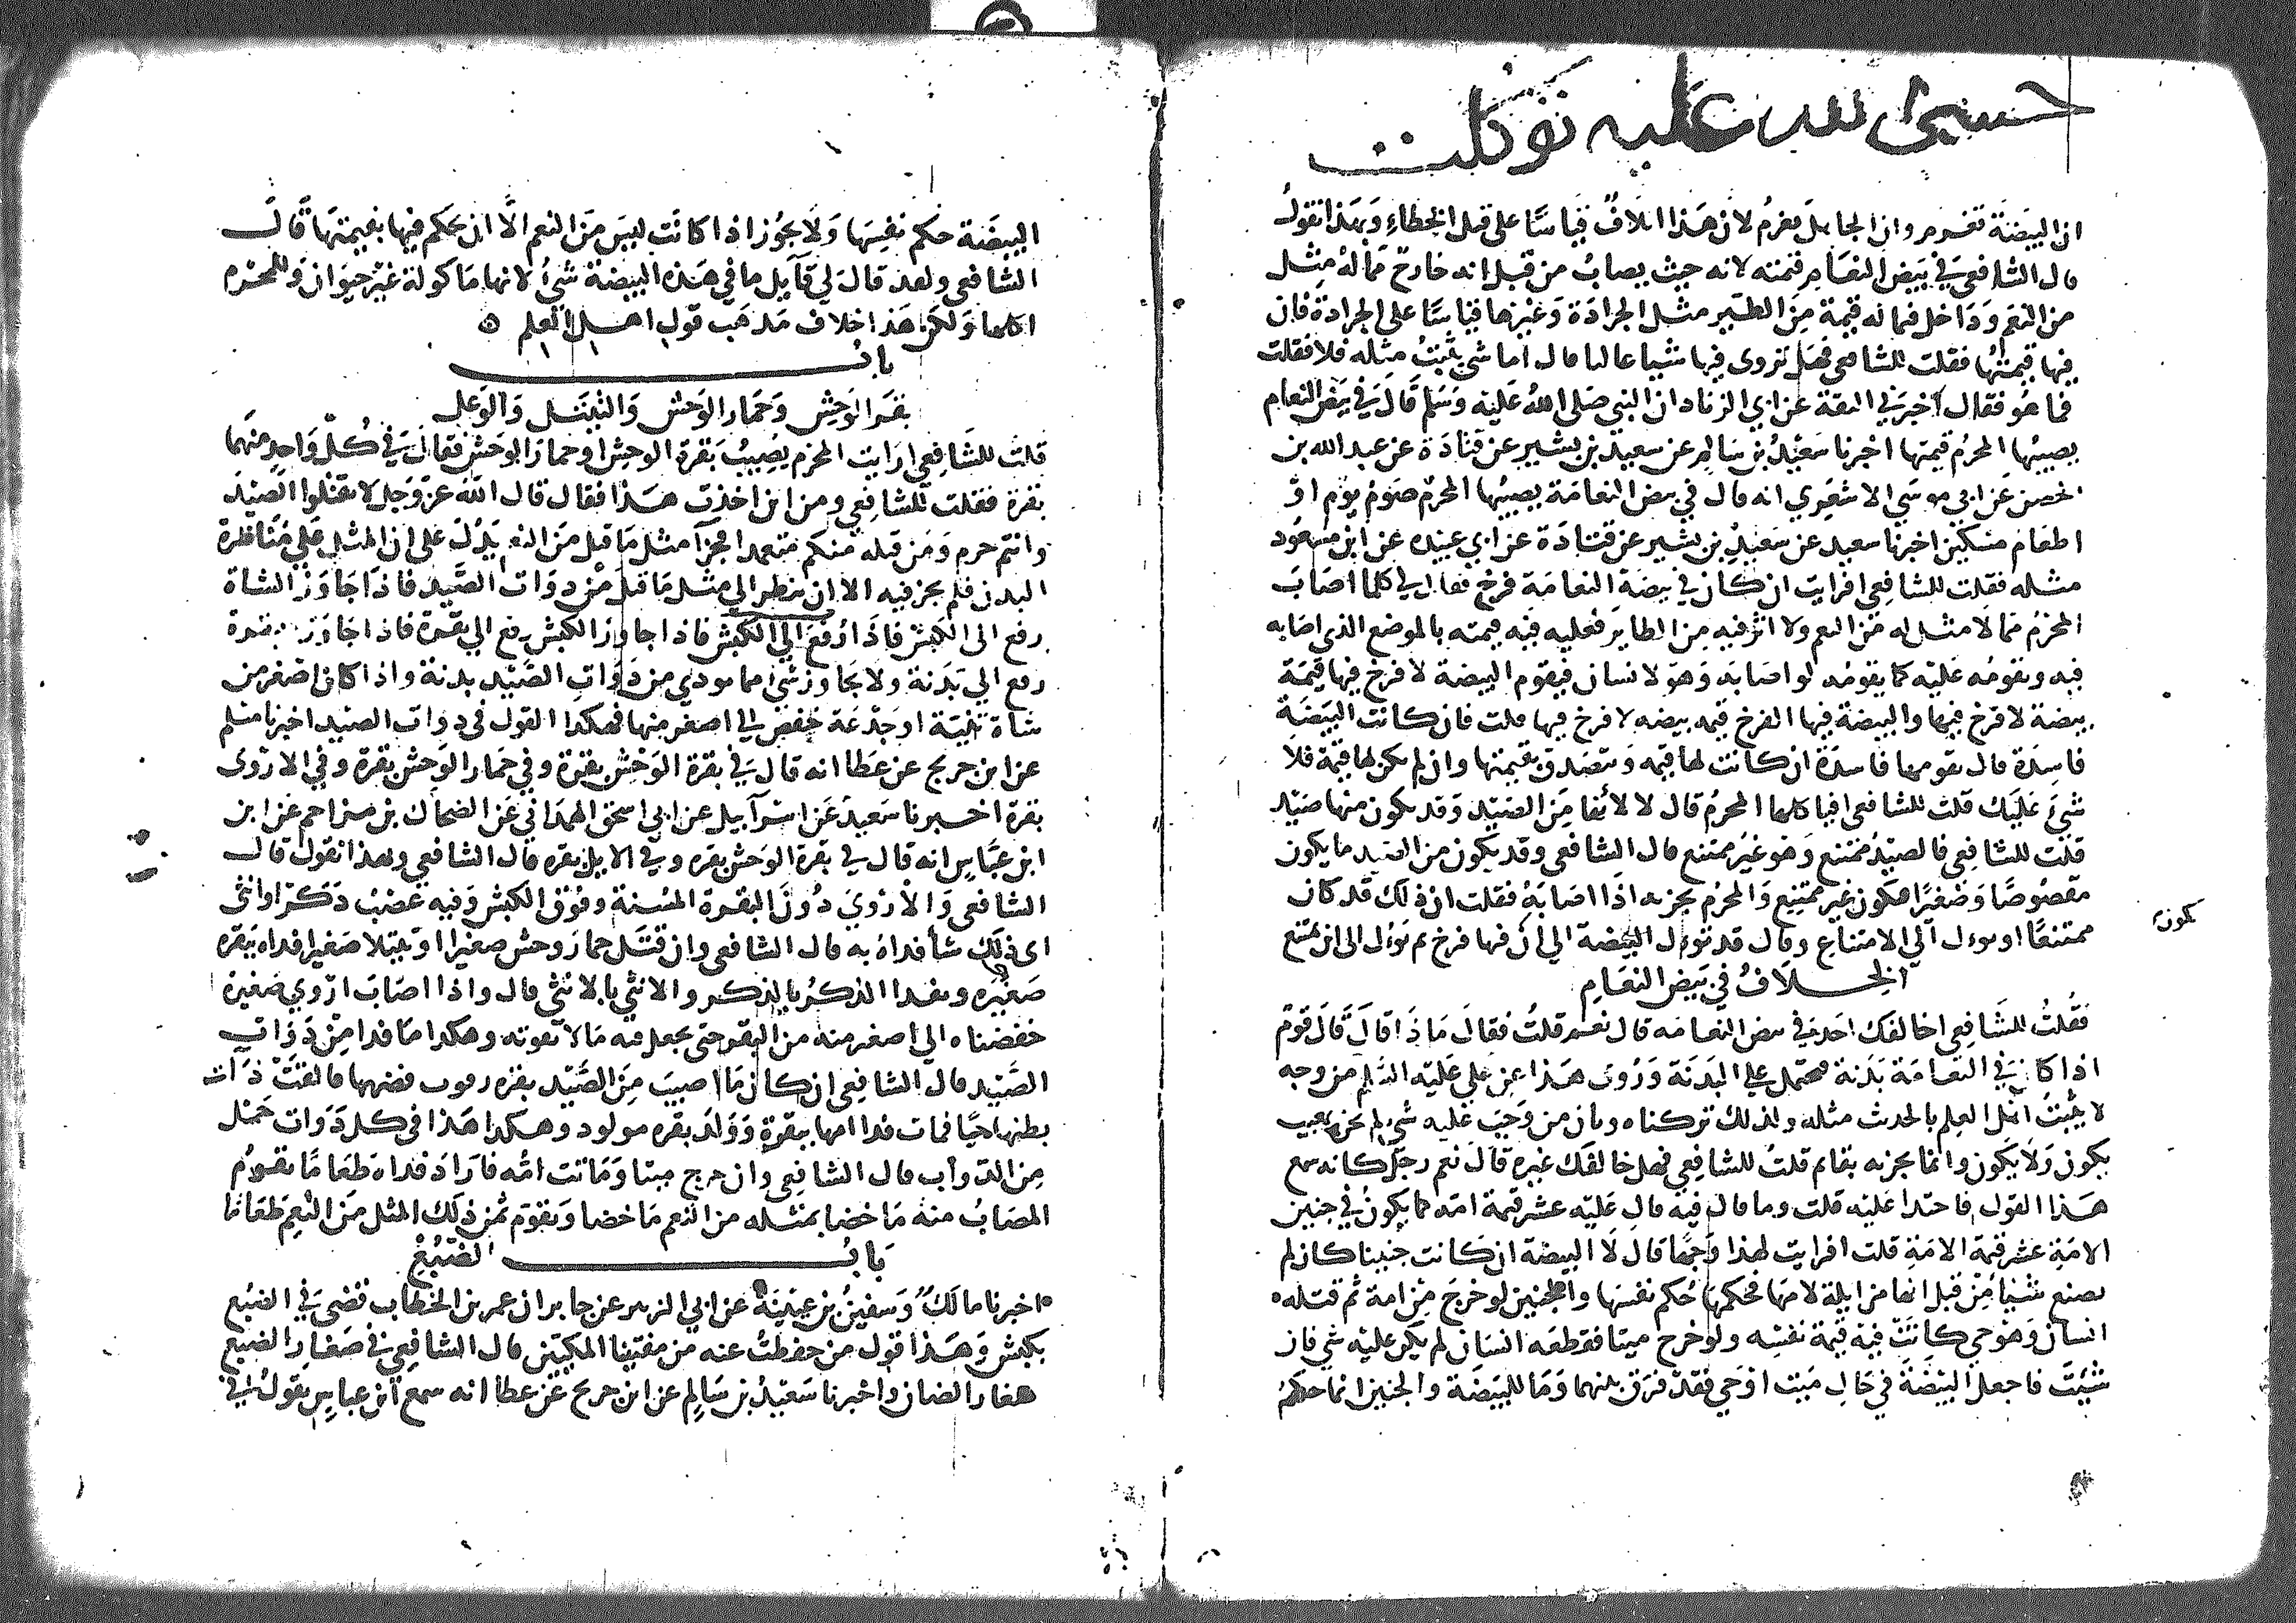 حسبي الله عليه توكلت
ان البيضة تغرم وان الجاهل يغرم لان هذا اتلاف قياسا على قتل الخطاء وبهذا نقول
قال الشافعي في بيض النعام قيمته لانه حيث يصاب من قبل انه خارج مما له مثل
من النعم وداخل فيما له قيمة من الطير مثل الجرادة وغيرها قياسا على الجرادة فان
فيها قيمتها فقلت للشافعي فهل تروى فيها شيا عاليا قال اما شي يثبت مثله فلا فقلت
فما هو فقال اخبرني الثقة عن ابي الزناد ان النبي صلى الله عليه وسلم قال في بيض النعام
يصيبها المحرم قيمتها اخبرنا سعيد بن سالم عن سعيد بن بشير عن قتادة عن عبد الله بن
الحصين عن ابي موسي الاشعري انه قال في بيض النعامة يصيبها المحرم صوم يوم او
اطعام مسكين اخبرنا سعيد عن سعيد بن بشير عن قتادة عن ابي عبيده عن ابن مسعود
مثله فقلت للشافعي افرايت ان كان في بيضة النعامة فرخ فقال لي كلما اصاب
المحرم مما لا مثل له من النعم ولا اثر فيه من الطاير فعليه فيه قيمته بالموضع الذي اصابه
فيه وتقومه عليه كما يقومه لو اصابه وهو لانسان فيقوم البيضة لا فرخ فيها قيمة
بيضة لا فرخ فيها والبيضة فيها الفرخ قيمه بيضه لا فرخ فيها قلت فان كانت البيضة
فاسدة قال تقومها فاسدة ان كانت لها قيمه وتتصدق بقيمتها وان لم يكن لها قيمة فلا
شي عليك قلت للشافعي افياكلها المحرم قال لا لانها من الصيد وقد يكون منها صيد
قلت للشافعي فالصيد ممتنع وهو غير ممتنع قال الشافعي وقد يكون من الصيد ما يكون
مقصوصا وصغيرا فيكون غير ممتنع والمحرم يجزيه اذا اصابه فقلت ان ذلك قد كان
يكون
ممتنعا او يول الي الامتناع وقال قد تؤل البيضة الي ان فيها فرخ ثم تؤل الى ان يمتنع
الخلاف في بيض النعام
فقلت للشافعي اخالفك احد في بيض النعامه قال نعم قلت فقال ماذا قال قال قوم
اذا كان في النعامة بدنة فتحمل على البدنة وروى هذا عن علي عليه السلم من وجه
لا يثبت اهل العلم بالحديث مثله ولذلك تركناه وبان من وجب عليه شي لم يجزه بمغيب
يكون ولا يكون وانما يجزيه بقايم قلت للشافعي فهل خالفك غيره قال نعم رجل كانه سمع
هذا القول فاحتذا عليه قلت وما قال فيه قال عليه عشر قيمة امه كما يكون في جنين
الامة عشر قيمة الامة قلت افرايت لهذا وجها قال لا البيضة ان كانت جنينا كان لم
يصنع شيئا من قبل انها مزايلة لامها فحكمها حكم نفسها والجنين لو خرج من امة ثم قتله
انسان وهو حي كانت فيه قيمة نفسه ولو خرج ميتا فقطعه انسان لم يكن عليه شي فان
شيت فاجعل البيضة في حال ميت او حي فقد فرق بينهما وما للبيضة والجنين انما حكم
البيضة حكم نفسها ولا يجوز اذا كانت ليس من النعم الا ان يحكم فيها بقيمتها قال
الشافعي ولعد قال لي قايل ما في هذه البيضة شي لانها ماكولة غير حيوان وللمحرم
اكلها ولكن هذا خلاف مذهب قول اهل العلم ه
باب
بقر الوحش وحمار الوحش والثيتل والوعل
قلت للشافعي ارايت المحرم يصيب بقرة الوحش او حمار الوحش فقال في كل واحد منهما
بقرة فقلت للشافعي ومن اين اخذت هذا فقال قال الله عز وجل لا تقتلوا الصيد
وانتم حرم ومن قتله منكم متعمدا فجزآ مثل ما قتل من النعم يدل على ان المثل على مناظرة
البدن فلم يجز فيه الا ان ينظر الي مثل ما قتل من دوات الصيد فاذا جاوز الشاة
رفع الى الكبش فاذا رفع الي الكبش فاذا جاوز الكبش رفع الي بقرة فاذا جاوز بقرة
رفع الي بدنة ولا يجاوز شي مما يودي من دوات الصيد بدنة واذا كان اصغر من
شاة ثنية او جذعة خفض الي اصغر منها فهكذا القول في دوات الصيد اخبرنا مسلم
عن ابن جريج عن عطا انه قال في بقرة الوحش بقرة وفي حمار الوحش بقرة وفي الاروى
بقرة اخبرنا سعيد عن اسرآيل عن ابي اسحق الهمداني عن الضحاك بن مزاحم عن ابن
ابن عباس انه قال في بقرة الوحش بقره وفي الايل بقره قال الشافعي وبهذا نقول قال
الشافعي والاروي دون البقرة المسنة وفوق الكبش وفيه عضب ذكرا وانثى
اى ذلك شا فداه به قال الشافعي وان قتل حمار وحش صغيرا او ثيتلا صغيرا فداه ببقره
صغيره ويفدا الذكر بالذكر والانثي بالانثي قال واذا اصاب اروي صغيرة
خفضناه الي اصغر منه من البقر حتى يجعل فيه ما لا يفوته وهكذا ما فدا من دوات
الصيد قال الشافعي ان كان ما اصيب من الصيد بقره رقوب فضربها فالقت ذات
بطنها حيا فمات فدا امها ببقرة وولد بقره مولود وهكذا هذا في كل دوات حمل
من الدوآب قال الشافعي وان خرج ميتا وماتت امه فاراد فداه طعاما يقوم
المصاب منه ماخضا بمثله من النعم ماخضا ويقوم ثمن ذلك المثل من النعم طعاما
باب الضبع
اخبرنا مالك وسفين بن عيينة عن ابي الزبير عن جابر ان عمر بن الخطاب قضى في الضبع
بكبش وهذا قول من حفظت عنه من مفتينا المكيين قال الشافعي في صغار الضبع
صغار الضان واخبرنا سعيد بن سالم عن ابن جريج عن عطا انه سمع ابن عباس يقول في